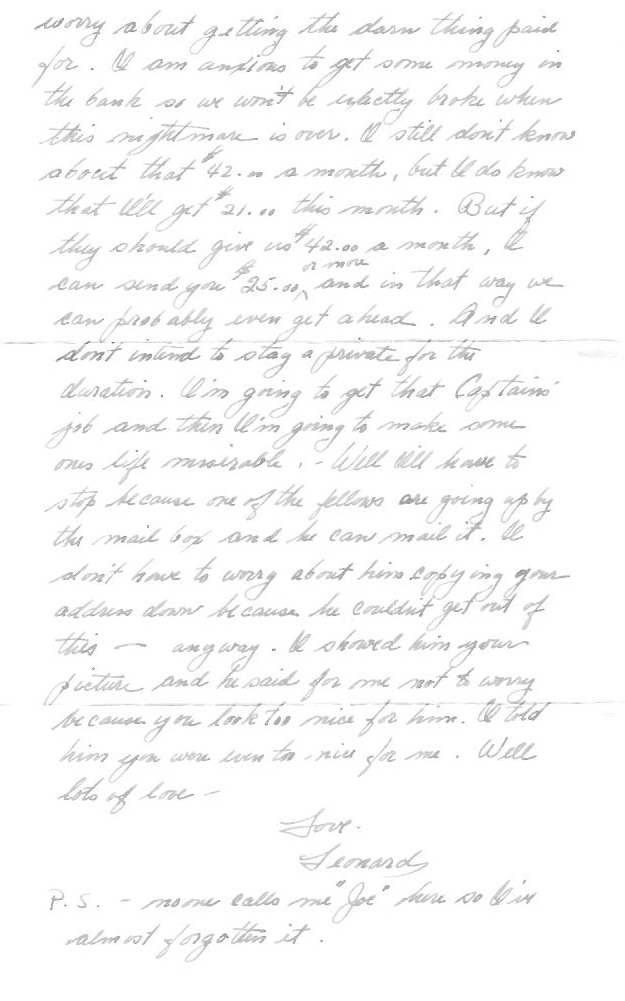 worry about getting the darn thing paid
for. I am anxious to get some money in
the bank so we won't be exactly broke when
this nightmare is over. I still don't know
about that $42.00 a month, but I do know
that I'll get $21.00 this month. But if
they should give us $42.00 a month, I
or more
can send you $25.00, and in that way we
can probably even get ahead. And I
don't intend to stay a private for the
duration. I'm going to get that Captains'
job and then I'm going to make some
ones life misirable. - Well I'll have to
stop because one of the fellows are going up by
the mail box and he can mail it. I
don't have to worry about him copying your
address down because he couldn't get out of
this — anyway. I showed him your
picture and he said for me not to worry
because you look too nice for him. I told
him you were even too nice for me. Well
lots of love -
Love.
Leonard
P.S. - no one calls me "Joe" here so I've
almost forgotten it.